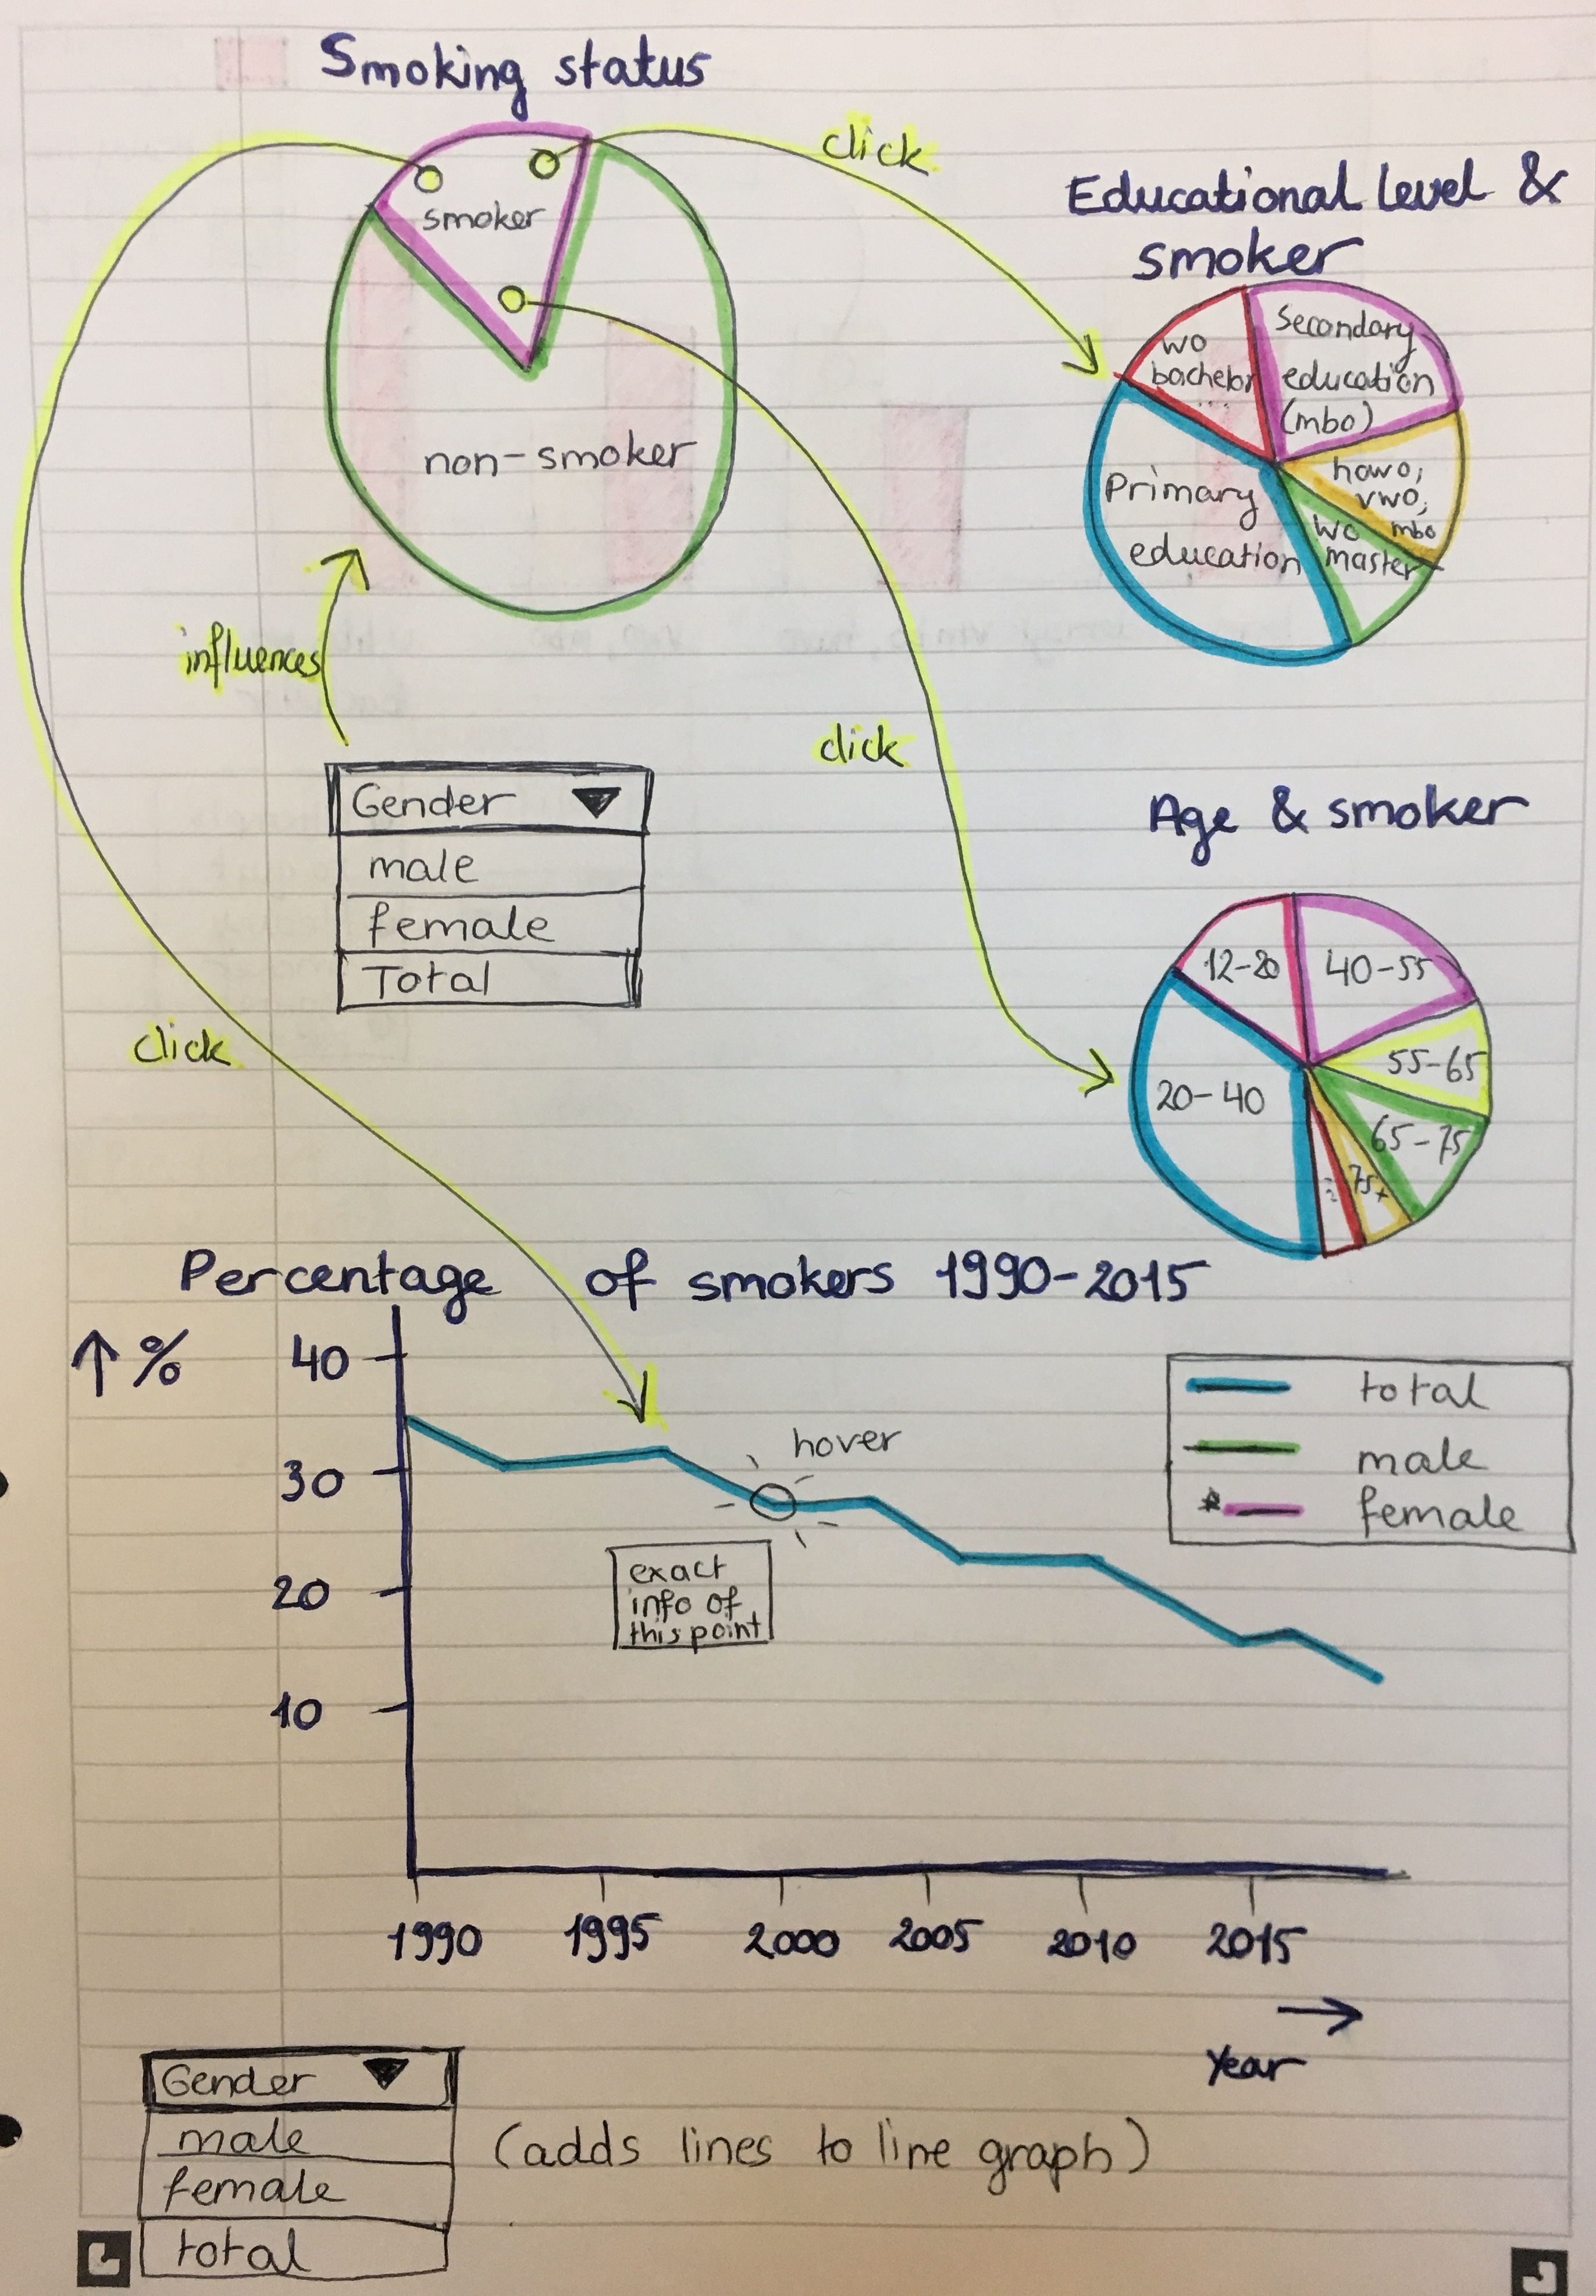 Smoking status
click
Educational level &
smoker
smoker
non-smoker
wo
bachelor
...
Secondary
education
(mbo)
havo,
vwo,
mbo
wo
master
Primary
education
influences
click
Gender
male
female
Total
Age & smoker
12-20
40-55
55-65
65-75
75+
20-40
click
Percentage of smokers 1990-2015
↑ %
40
30
20
10
hover
exact
info of
this point
total
male
* female
1990 1995 2000 2005 2010 2015
→
Year
Gender
male
female
total
(adds lines to line graph)